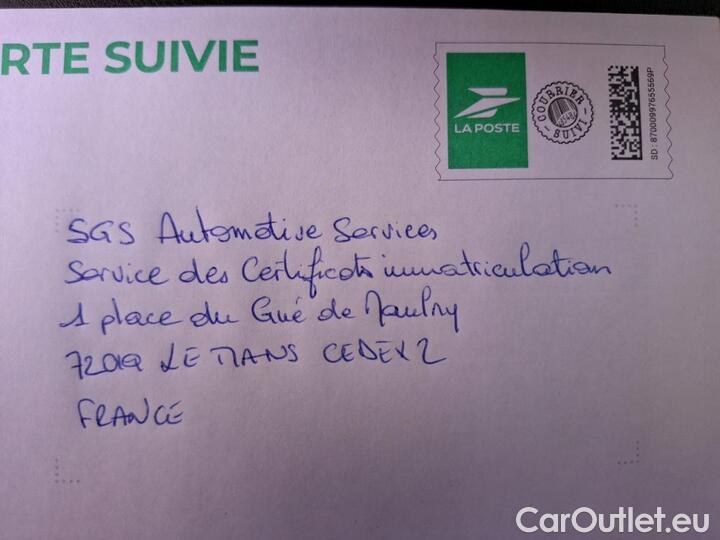 RTE SUIVIE
LA POSTE
COURRIER
SUIVI
SD : 87000997655569P
SGS Automotive Services
Service des Certificats immatriculation
1 place du Gué de Maulny
72019 LE MANS CEDEX 2
FRANCE
CarOutlet.eu